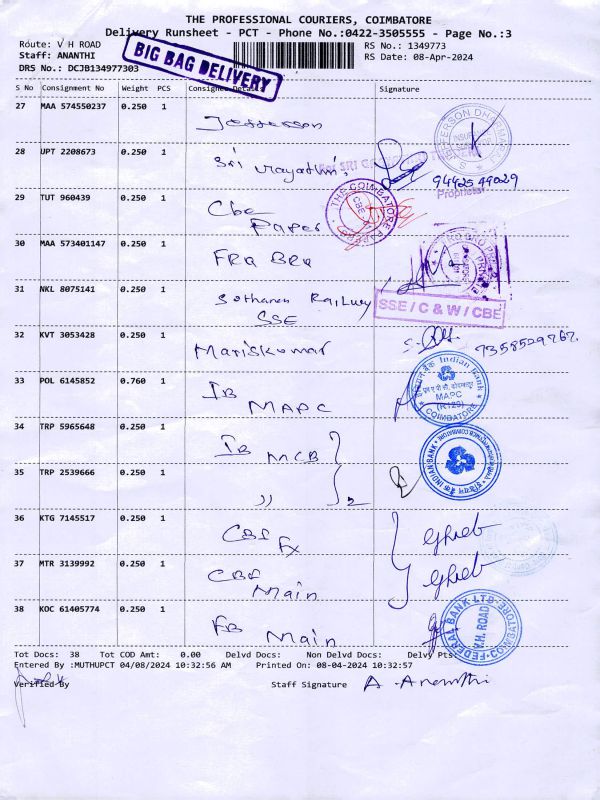 THE PROFESSIONAL COURIERS, COIMBATORE
Delivery Runsheet - PCT - Phone No.:0422-3505555 - Page No.:3
Route: V H ROAD RS No.: 1349773
Staff: ANANTHI RS Date: 08-Apr-2024
DRS No.: DCJB134977303
BIG BAG DELIVERY
S No Consignment No Weight PCS Consignee Details Signature
27 MAA 574550237 0.250 1 Jefferson
28 UPT 2208673 0.250 1 Sri
94425 49029
29 TUT 960439 0.250 1 Cbe
Paper
30 MAA 573401147 0.250 1 FRA BRA
31 NKL 8075141 0.250 1 Sotharan Railway
SSE
SSE / C & W / CBE
32 KVT 3053428 0.250 1 Mariskumar
33 POL 6145852 0.760 1 IB
MAPC
Indian Bank
MAPC
COIMBATORE
34 TRP 5965648 0.250 1 IB MCB
INDIAN BANK
35 TRP 2539666 0.250 1 ,, 2
36 KTG 7145517 0.250 1 CBE
Fx
37 MTR 3139992 0.250 1 CBE
Main
38 KOC 61405774 0.250 1 FB Main
FEDERAL BANK LTD.
V.H. ROAD
COIMBATORE
Tot Docs: 38 Tot COD Amt: 0.00 Delvd Docs: Non Delvd Docs: Delvy Pts:
Entered By :MUTHUPCT 04/08/2024 10:32:56 AM Printed On: 08-04-2024 10:32:57
Verified By Staff Signature A. Ananthi